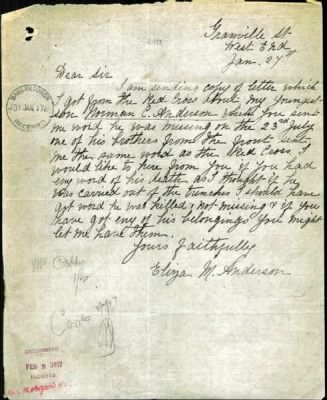 Granville St
West End
Jan. 27th
Dear Sir
I am sending copy of letter which
I got from the Red Cross about my youngest
son Norman C. Anderson when you sent
me word he was missing on the 23rd July
one of his brothers from the front sent
me the same word as the Red Cross. I
would like to hire from you if you had
eny word of his death as I thought if he
was carried out of the trenches I should have
got word he was killed & not missing & if you
have got eny of his belongings you might
let me have them.
Yours faithfully
Eliza M. Anderson
1/2
FEB 3 1917